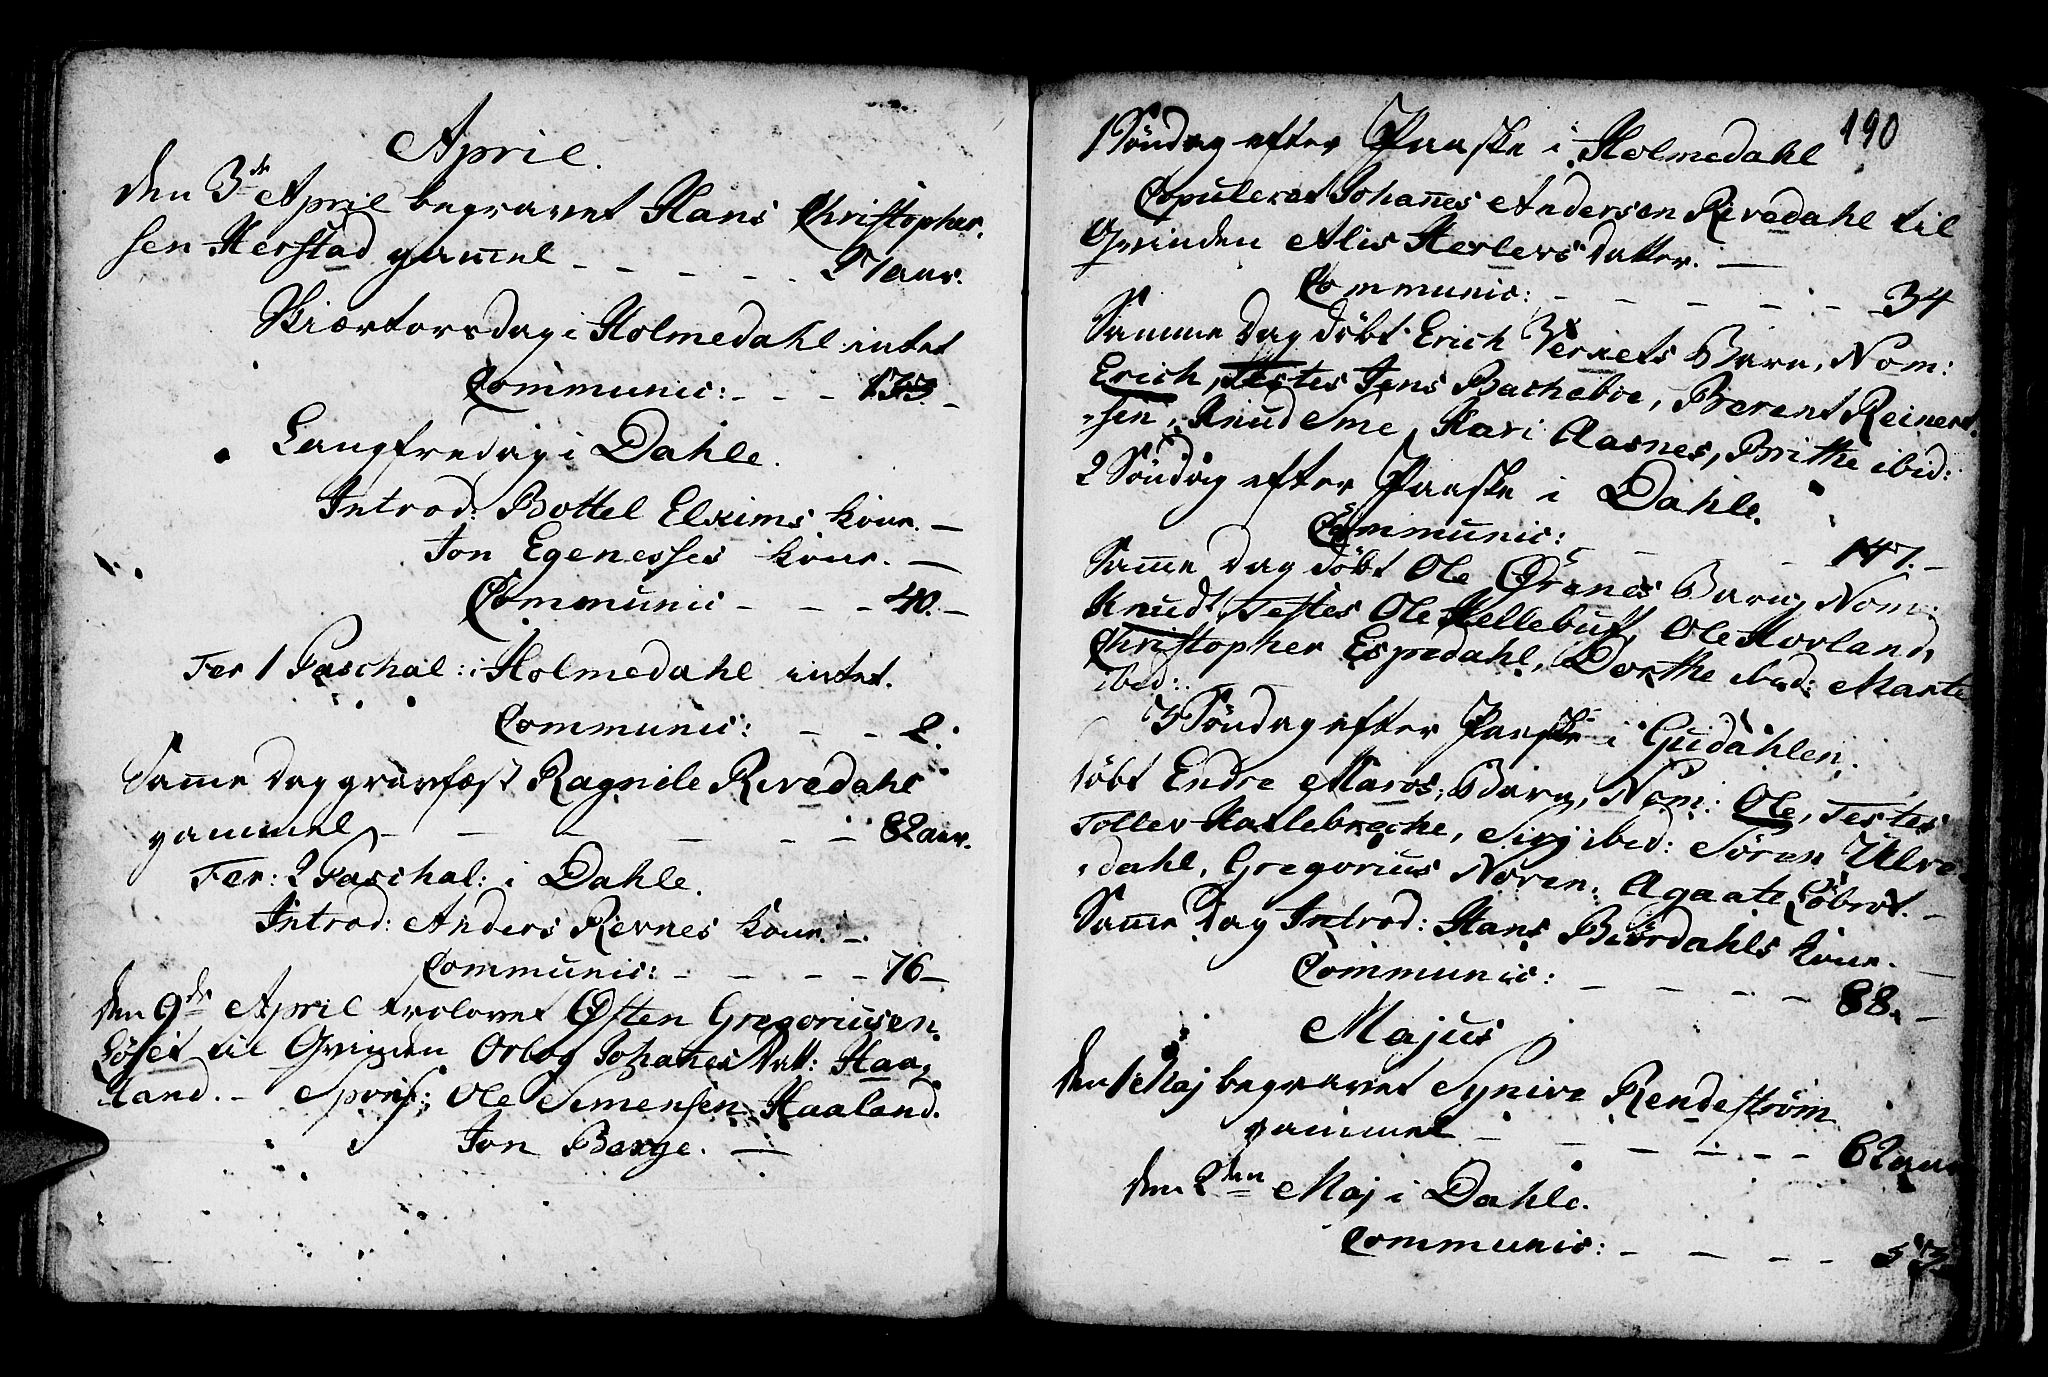 April.
den 3de April begravet Hans Christopher-
sen Herstad gam̄el - - - - - 27 aar.
Skiærtorsdag i Holmedahl intet
Communic: - - -
Langfredag i Dahle.
Introd: Bottel Elkims kone. -
Jon Egenesses kone. -
Communic - - - 40. -
Fer 1 Paschal: i Holmedahl intet.
Communic: - - 2.
Sam̄e dag gravfæst Ragnile Rivedahl
gammel - - - - - 82 aar.
Fer: 2 Paschal: i Dahle.
Introd: Anders Revnes kone. -
Communic: - - - - 76 -
den 9de April trolovet Østen Gregoriusen
Løset til Qvinden Orlog Johan̄es Datt: Haa-
land. - Spons: Ole Simensen Haaland.
Jon Berge. -
190
1 Søndag efter Paaske i Holmedahl
Copuleret Johan̄es Andersen Rivedahl til
Qvinden Alis Herlevs datter. -
Communic: - - - - - 34
Samme dag døbt Erich Verkets Barn, Nom:
Erich, Testes Jens Bacheboe, Berent Reinert-
sen, Knud Sme, Kari Aasnes, Brithe ibid:
2 Søndag efter Paaske i Dahle.
Communic: - - - 147. -
Sam̄e dag døbt Ole Ørenes Barn, Nom:
Knud, Testes Ole Hellebust, Ole Hovland,
Christopher Espedahl, Dorthe ibid: Marte
ibid:
3 Søndag efter Paaske i Gudahlen.
døbt Endre Maros, Barn, Nom: Ole, Testes
Tollev Karlebrecke, Siri ibid: Søren Ulve-
dahl, Gregorius Noren, Agaate Løbrot. -
Sam̄e Dag Introd: Hans Biørdahls kone. -
Communic: - - - - 88. -
Majus
den 1 Maj begravet Synive Rendestrøm
gammel - - - - - 62 aar
den 2den Maj i Dahle.
Communic: - - - - 53